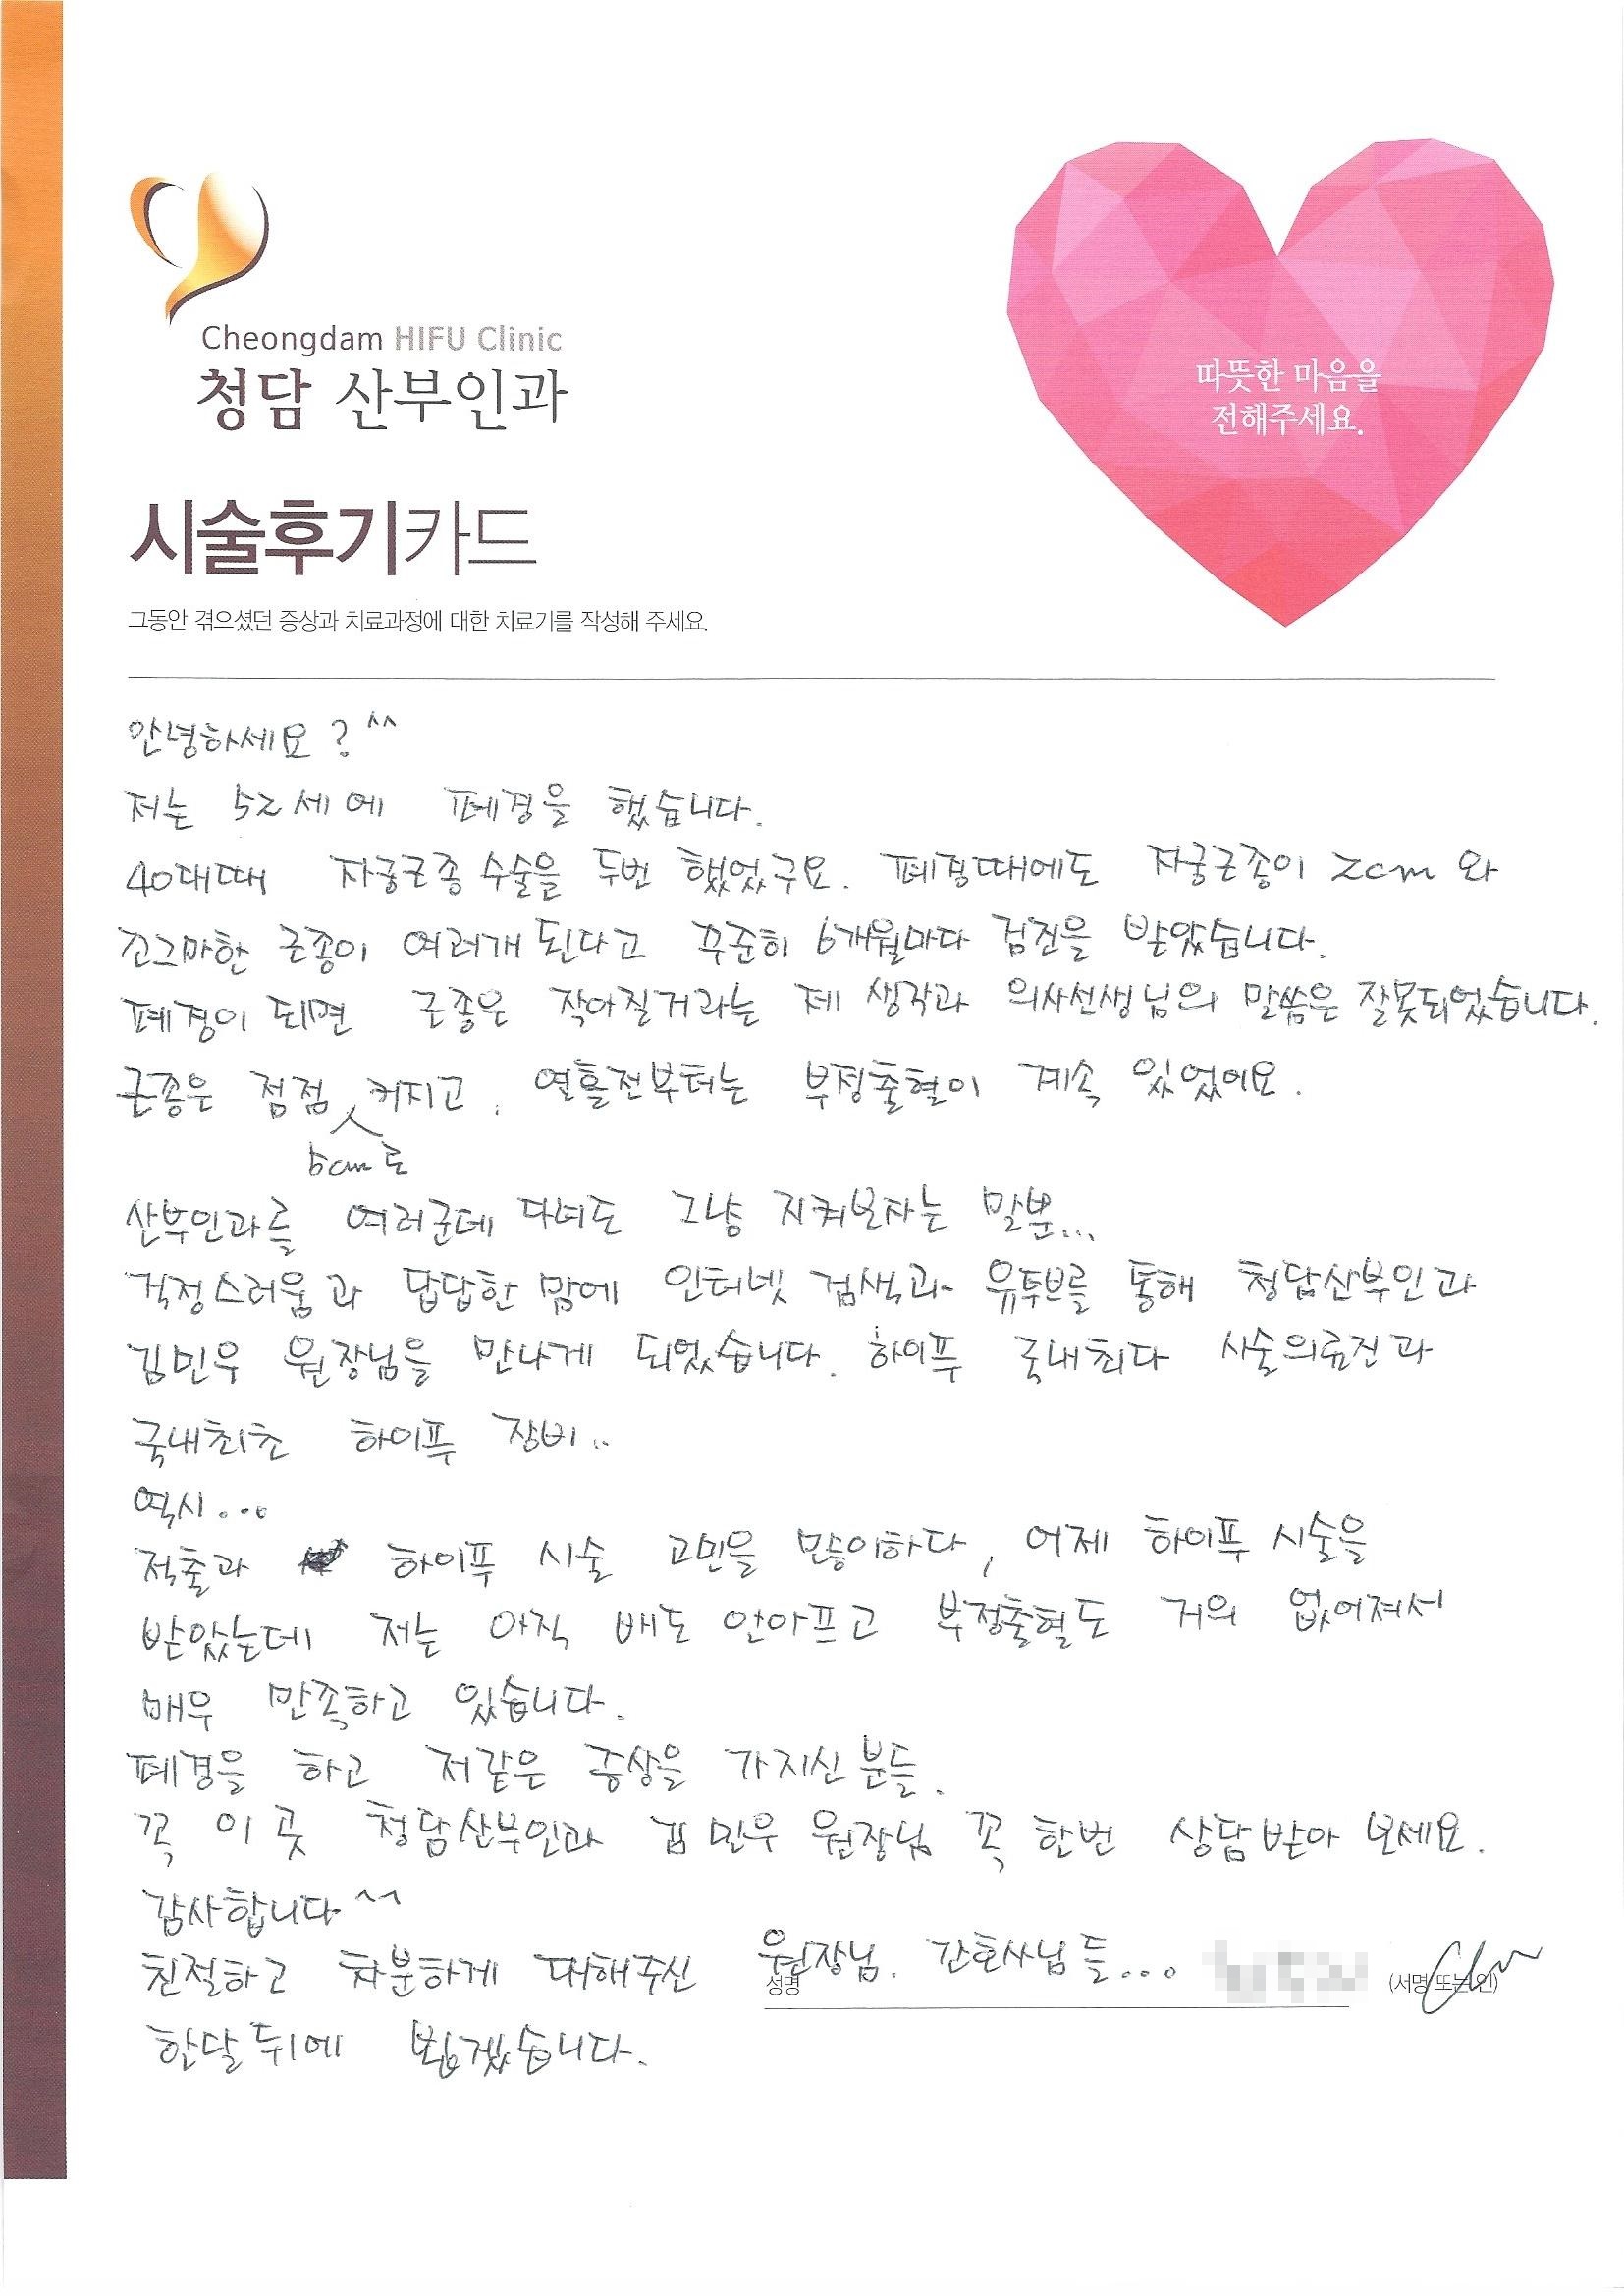 Cheongdam HIFU Clinic
청담 산부인과
따뜻한 마음을
전해주세요.
시술후기카드
그동안 겪으셨던 증상과 치료과정에 대한 치료기를 작성해 주세요.
안녕하세요? ^^
저는 52세에 폐경을 했습니다.
40대때 자궁근종 수술을 두번 했었구요. 폐경때에도 자궁근종이 2cm 와
조그마한 근종이 여러개 된다고 꾸준히 6개월마다 검진을 받았습니다.
폐경이 되면 근종은 작아질거라는 제 생각과 의사선생님의 말씀은 잘못되었습니다.
근종은 점점 5cm로 커지고. 열흘전부터는 부정출혈이 계속 있었어요.
산부인과를 여러군데 다녀도 그냥 지켜보자는 말뿐...
걱정스러움과 답답한 맘에 인터넷 검색과 유투브를 통해 청담산부인과
김민우 원장님을 만나게 되었습니다. 하이푸 국내최다 시술의료진과
국내최초 하이푸 장비..
역시...
적출과 하이푸 시술 고민을 많이하다, 어제 하이푸 시술을
받았는데 저는 아직 배도 안아프고 부정출혈도 거의 없어져서
매우 만족하고 있습니다.
폐경을 하고 저같은 증상을 가지신분들.
꼭 이곳 청담산부인과 김민우 원장님 꼭 한번 상담받아 보세요.
감사합니다^^
친절하고 차분하게 대해주신 원장님. 간호사님들...
성명 (서명 또는 인)
한달뒤에 뵙겠습니다.